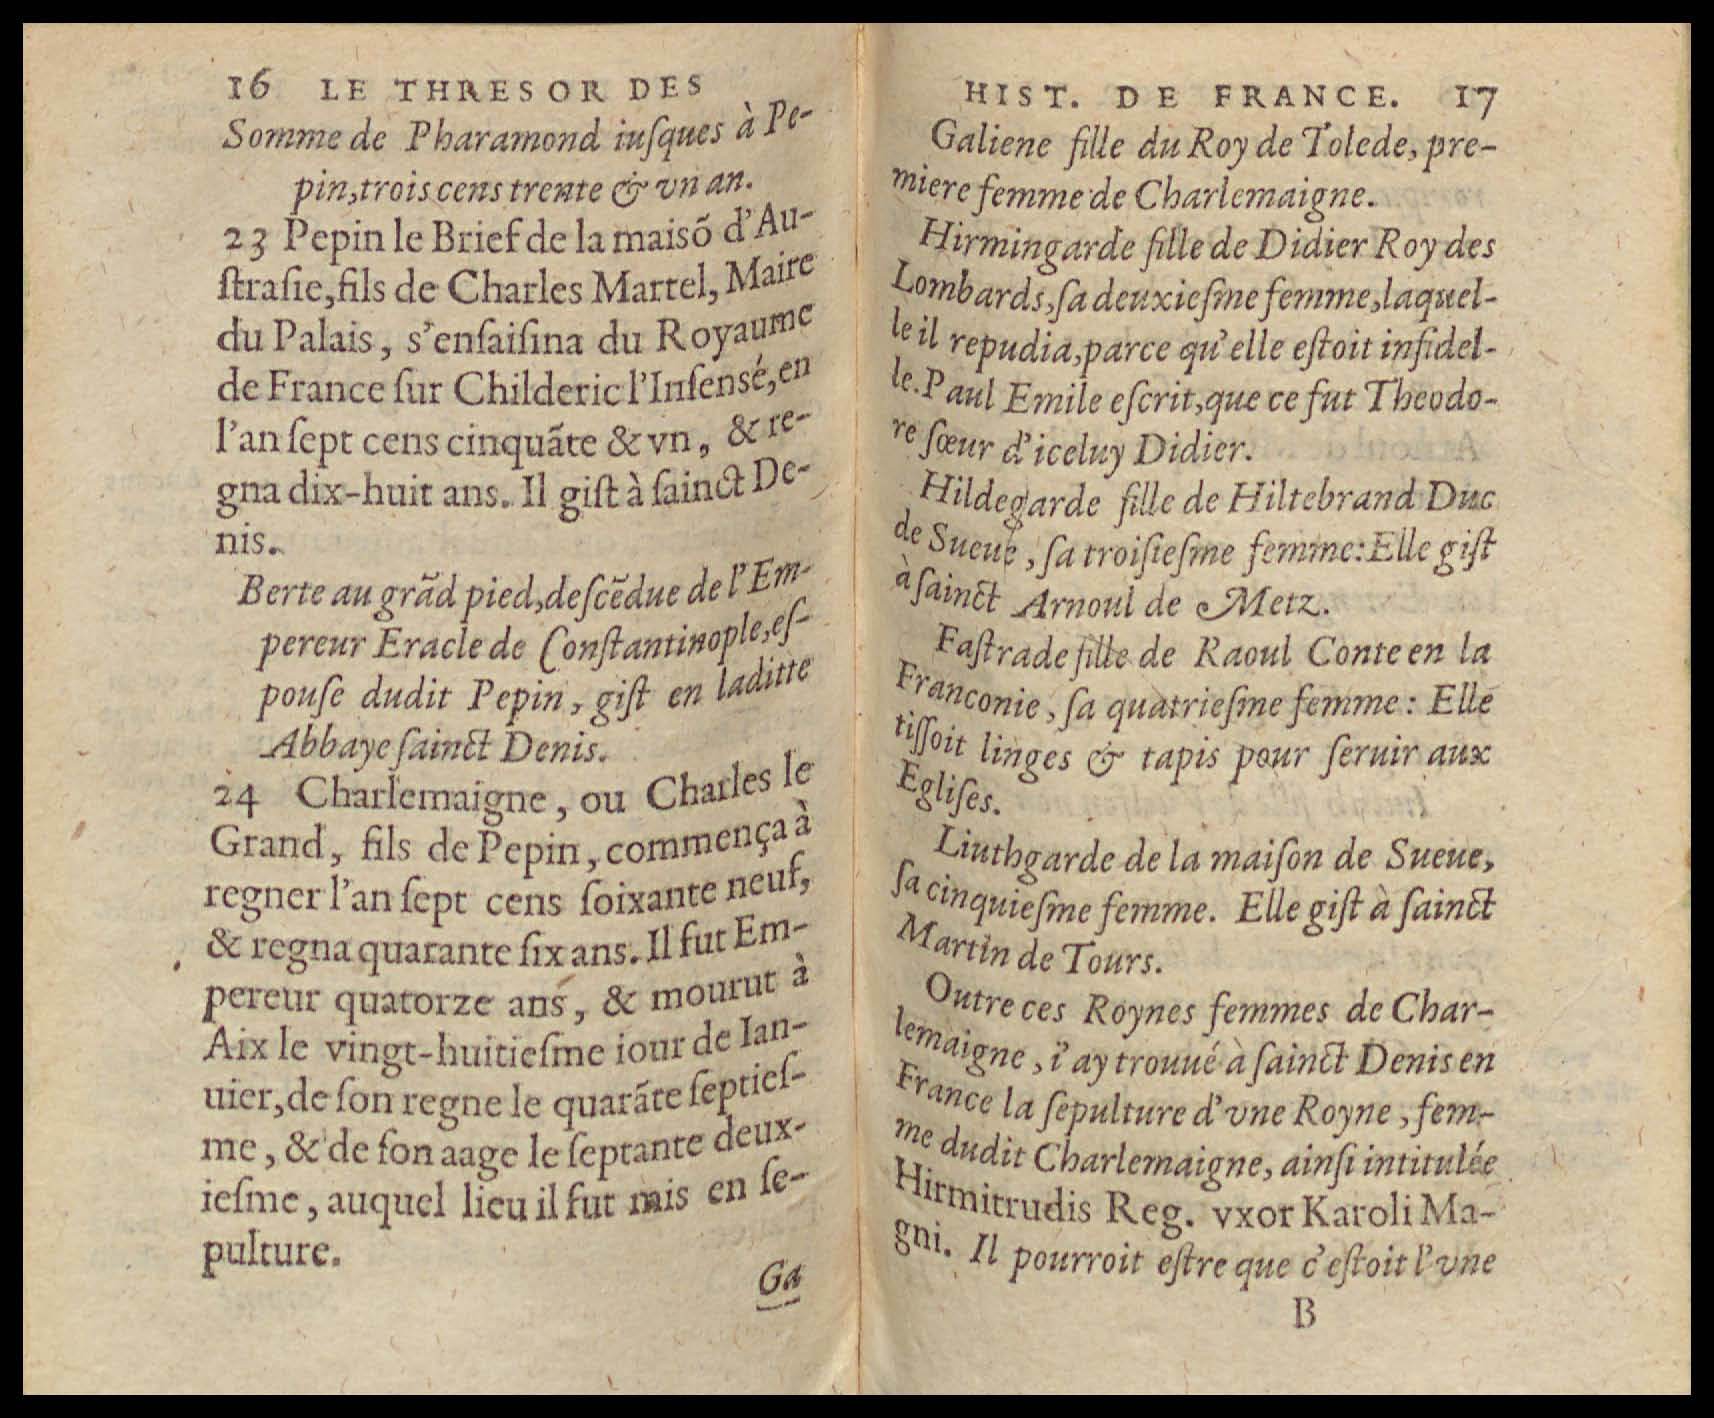 16 LE THRESOR DES
Somme de Pharamond iuſques à Pe-
pin, trois cens trente & vn an.
23 Pepin le Brief de la maisõ d'Au-
ſtraſie, fils de Charles Martel, Maire
du Palais, s'enſaiſina du Royaume
de France ſur Childeric l'Inſensé, en
l'an ſept cens cinquãte & vn, & re-
gna dix-huit ans. Il giſt à ſainct De-
nis.
Berte au grãd pied, deſcẽdue de l'Em-
pereur Eracle de Conſtantinople, eſ-
pouſe dudit Pepin, giſt en laditte
Abbaye ſainct Denis.
24 Charlemaigne, ou Charles le
Grand, fils de Pepin, commença à
regner l'an ſept cens ſoixante neuf,
& regna quarante ſix ans. Il fut Em-
pereur quatorze ans, & mourut à
Aix le vingt-huitieſme iour de Ian-
uier, de ſon regne le quarãte ſeptieſ-
me, & de ſon aage le ſeptante deux-
ieſme, auquel lieu il fut mis en ſe-
pulture.
Ga
HIST. DE FRANCE. 17
Galiene fille du Roy de Tolede, pre-
miere femme de Charlemaigne.
Hirmingarde fille de Didier Roy des
Lombards, ſa deuxieſme femme, laquel-
le il repudia, parce qu'elle eſtoit infidel-
le. Paul Emile eſcrit, que ce fut Theodo-
re ſœur d'iceluy Didier.
Hildegarde fille de Hiltebrand Duc
de Sueue, ſa troiſieſme femme: Elle giſt
à ſainct Arnoul de Metz.
Faſtrade fille de Raoul Conte en la
Franconie, ſa quatrieſme femme: Elle
tiſſoit linges & tapis pour ſeruir aux
Egliſes.
Liuthgarde de la maiſon de Sueue,
ſa cinquieſme femme. Elle giſt à ſainct
Martin de Tours.
Outre ces Roynes femmes de Char-
lemaigne, i'ay trouué à ſainct Denis en
France la ſepulture d'vne Royne, fem-
me dudit Charlemaigne, ainſi intitulée
Hirmitrudis Reg. vxor Karoli Ma-
gni. Il pourroit eſtre que c'eſtoit l'vne
B